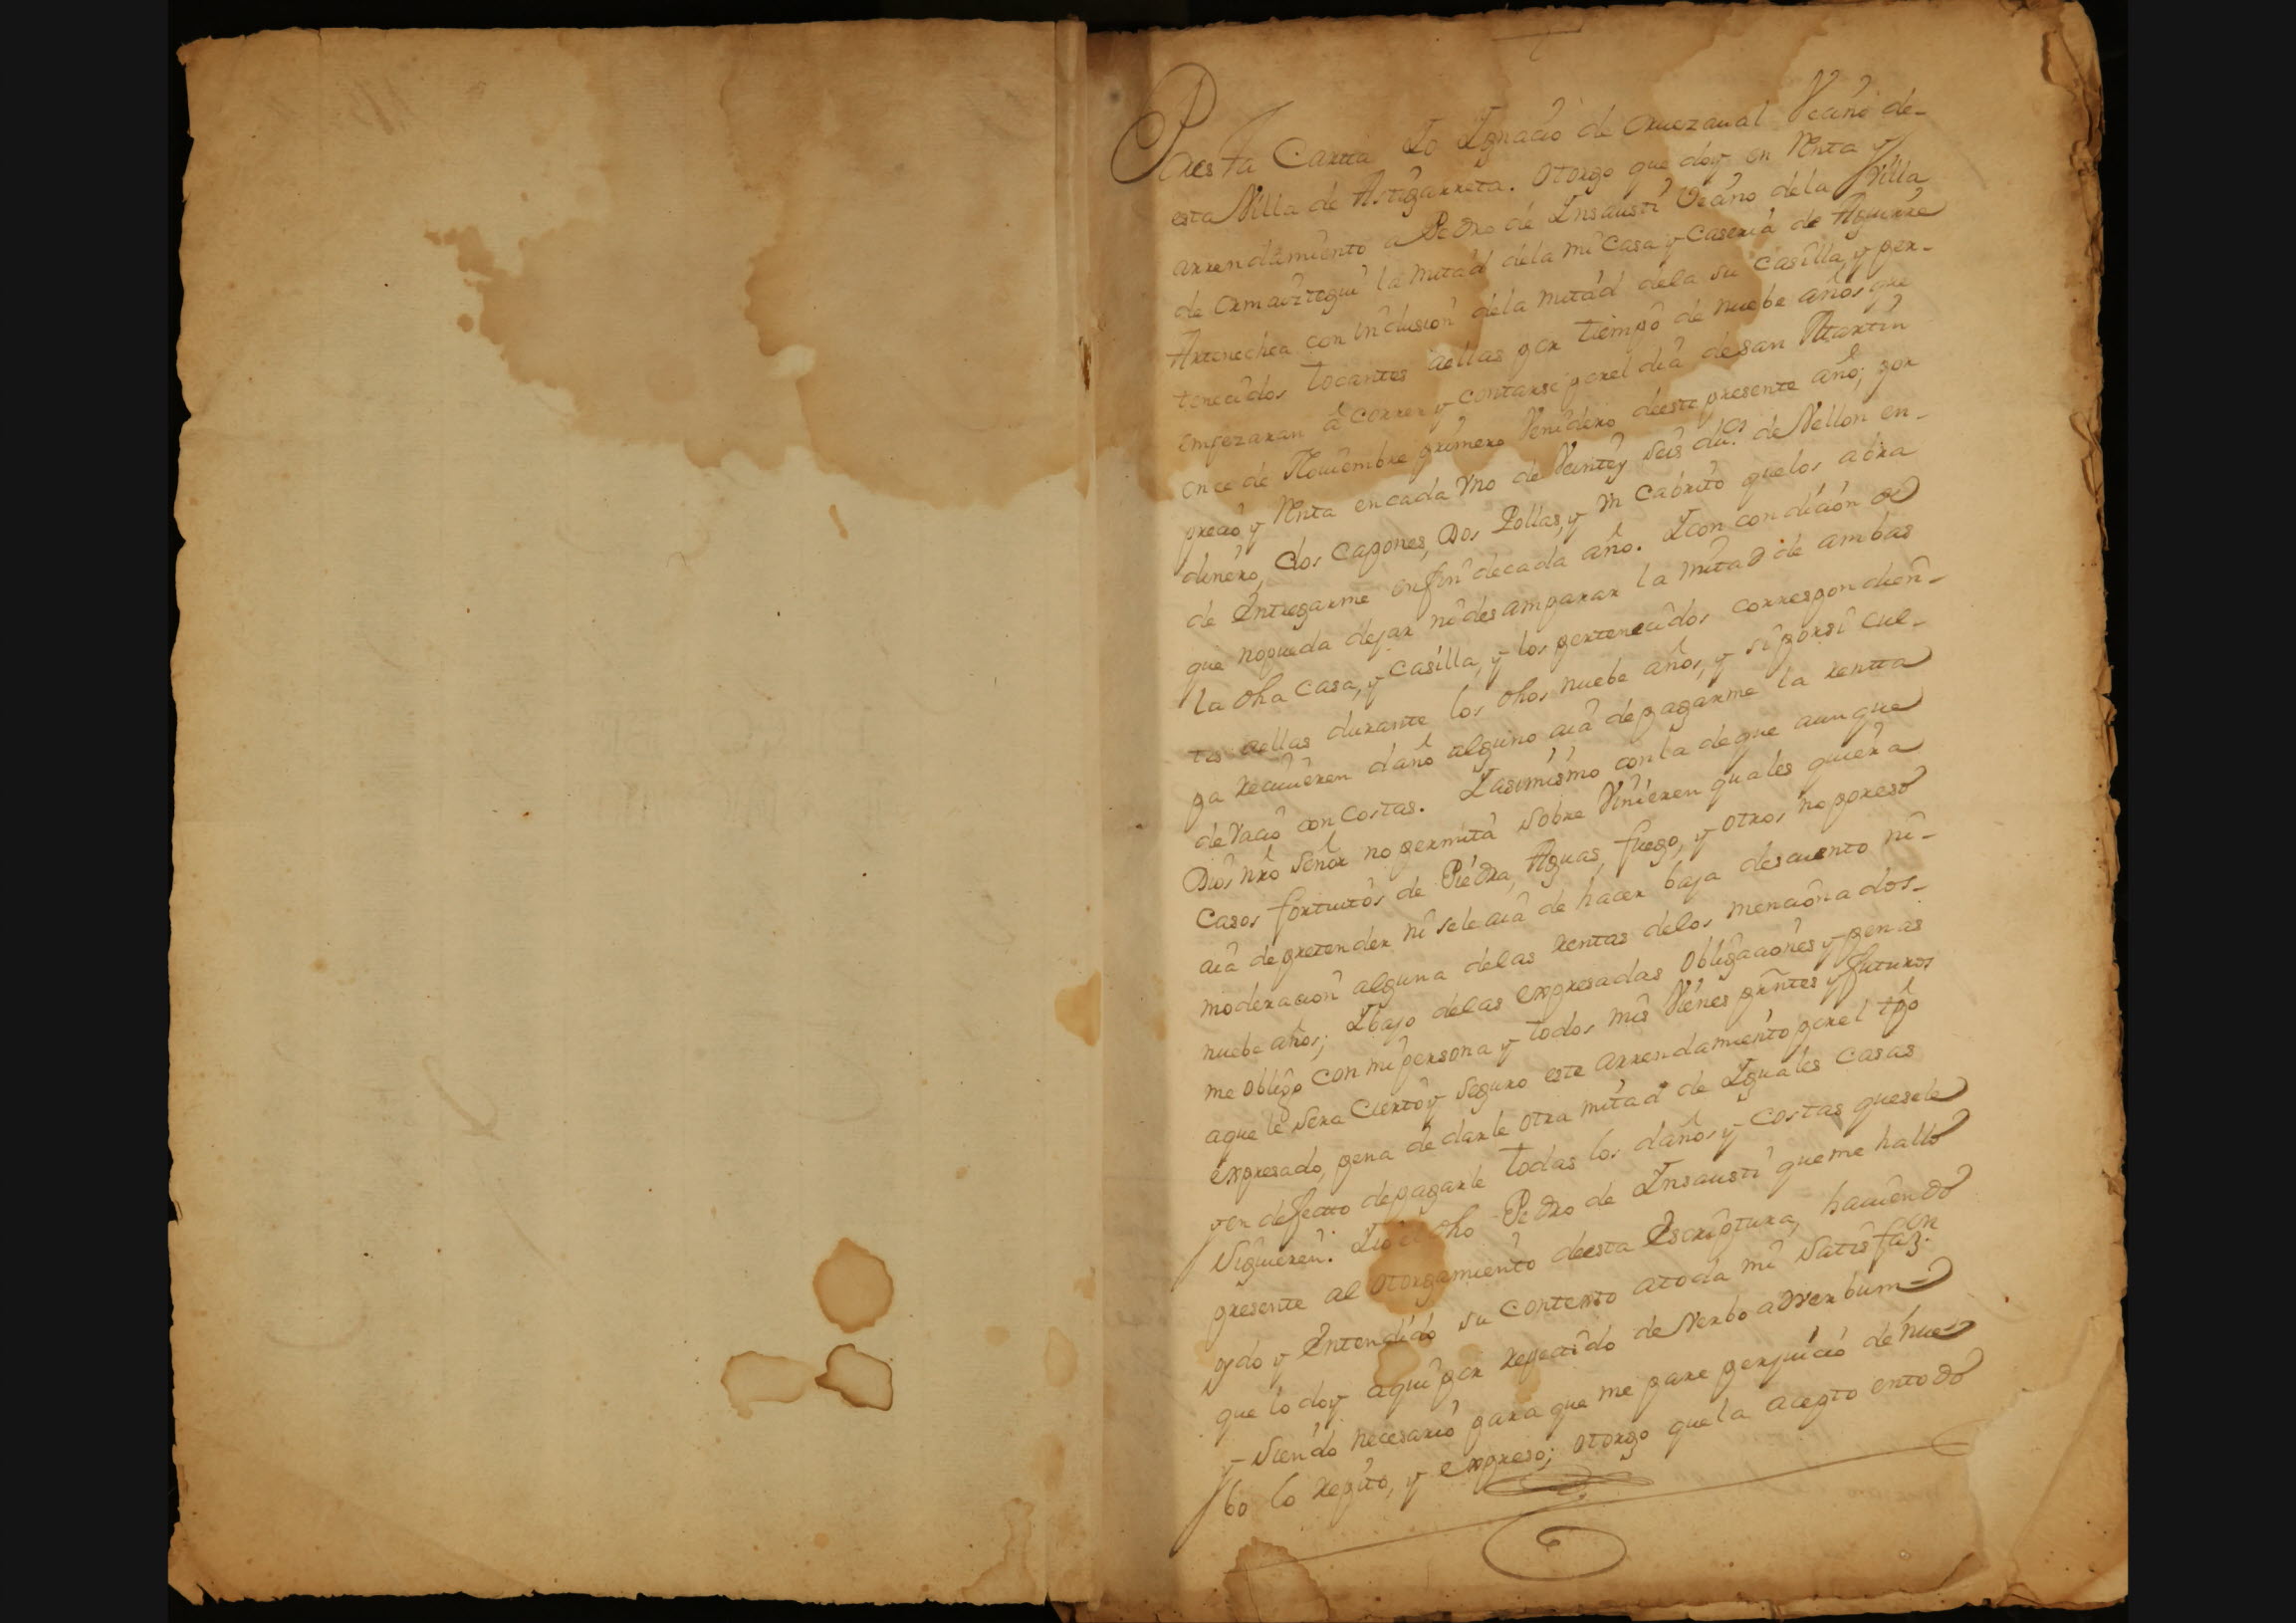 Por esta Carta Yo Ygnacio de Oruezaual Vecino de-
esta Villa de Astigarreta. Otorgo que doy en Renta y
arrendamiento a Pedro de Ynsausti Vecino dela Villa
de Ormaiztegui la mitad dela mi Casa y Caseria de Aguirre
Artenechea con inclusion dela mitad dela su Casilla, y per-
tenecidos tocantes aellas por tiempo de nuebe años que
empezaran â correr y contarse porel dia de san Martin
once de Nouiembre primero Venidero deeste presente año; por
precio y Renta encada Vno de Veintey seis du.os de Vellon en-
dinero, dos capones, Dos Pollas, y Vn Cabrito quelos abra
de Entregarme enfin decada año. Icon condicion de
que nopueda dejar ni desamparar la mitad de ambas
la dha casa, y casilla, y los pertenecidos correspondien-
tes aellas durante los dhos nuebe años, y si porsi cul-
pa reciuieren daño alguno aiâ de pagarme la rentta
de vacio con costas. Iasimismo conla de que aunque
Dios nrô señor no permita sobre Vinieren quales quiera
casos fortuitos de Piedra, Aguas, fuego, y otros no poreso
aiâ de pretender ni sele aiâ de hacer baja descuento ni-
moderacion alguna delas rentas delos mencionados-
nuebe años; Ibajo delas expresadas obligaciones y penas
me obligo con mi persona y todos mis Vienes pntes y futuros
aque le sera cierto y seguro este arrendamiento porel tpô
expresado, pena de darle otra mitad de Yguales casas
yen defecto depagarle todas los daños y costas quesele
siguieren. Yio el dho Pedro de Ynsausti que me hallo
presente al otorgamiento deesta Escriptura, hauiendo
oydo y Entendido su contexto atoda mi satisfaz.on
que lo doy aqui por repetido de Verbo adverbum-
y siendo necesario para que me pare perjuicio de nue-
bo lo repito, y expreso; otorgo quela acepto entodo